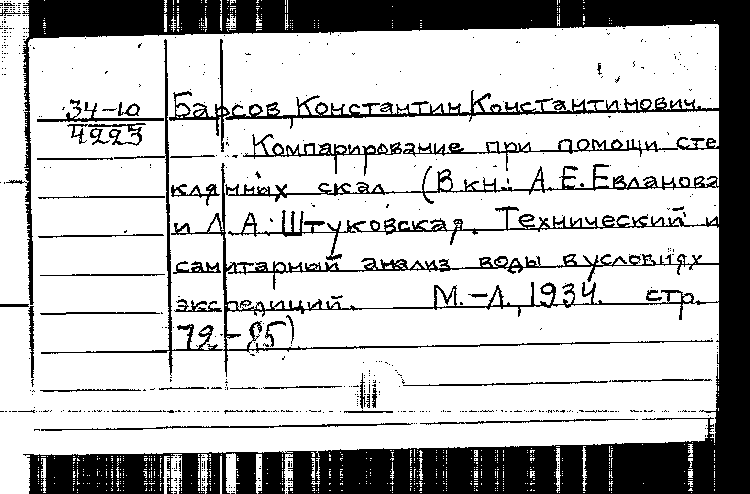 34-10
4223
Барсов, Константин Константинович.
Компарирование при помощи сте
клянных скал (В кн.: А.Е.Евланова
и Л.А.Штуковская. Технический и
санитарный анализ воды в условиях
экспедиций. М.-Л., 1934. стр.
72-85)